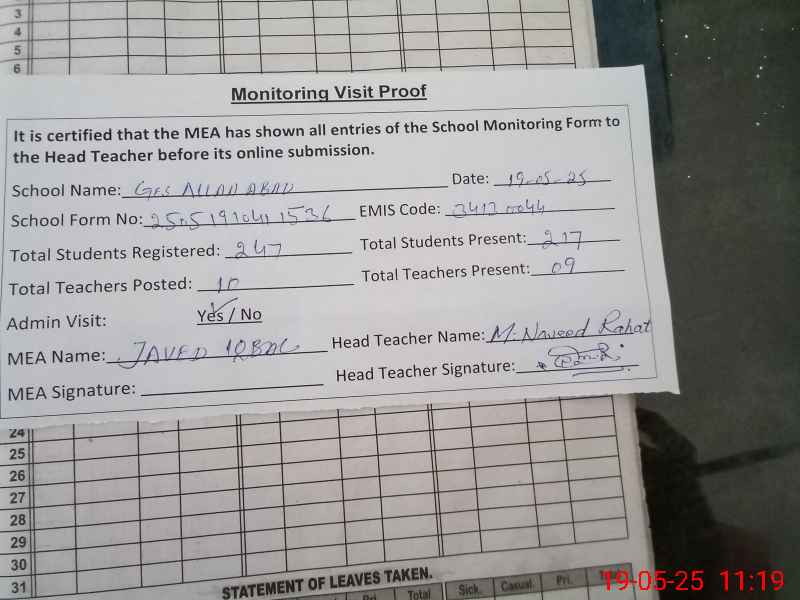 3
4
5
6
Monitoring Visit Proof
It is certified that the MEA has shown all entries of the School Monitoring Form to
the Head Teacher before its online submission.
School Name: GES ALLAH ABAD Date: 19-05-25
School Form No: 2505191041 1536 EMIS Code: 34120044
Total Students Registered: 247 Total Students Present: 217
Total Teachers Posted: 10 Total Teachers Present: 09
Admin Visit: Yes / No
MEA Name: JAVED IQBAL Head Teacher Name: M. Naveed Rahat
MEA Signature: Head Teacher Signature:
24
25
26
27
28
29
30
31
STATEMENT OF LEAVES TAKEN.
Pri. Total Sick. Casual. Pri.
19-05-25 11:19